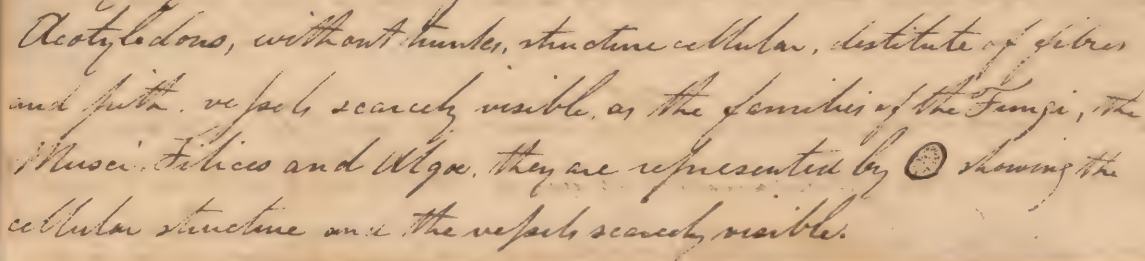 Acotyledons, without trunks, structure cellular, destitute of fibres
and pith. vessels scarcely visible, as the families of the Fungi, the
Musci, Filices and Algæ, they are represented by showing the
cellular structure and the vessels scarcely visible.